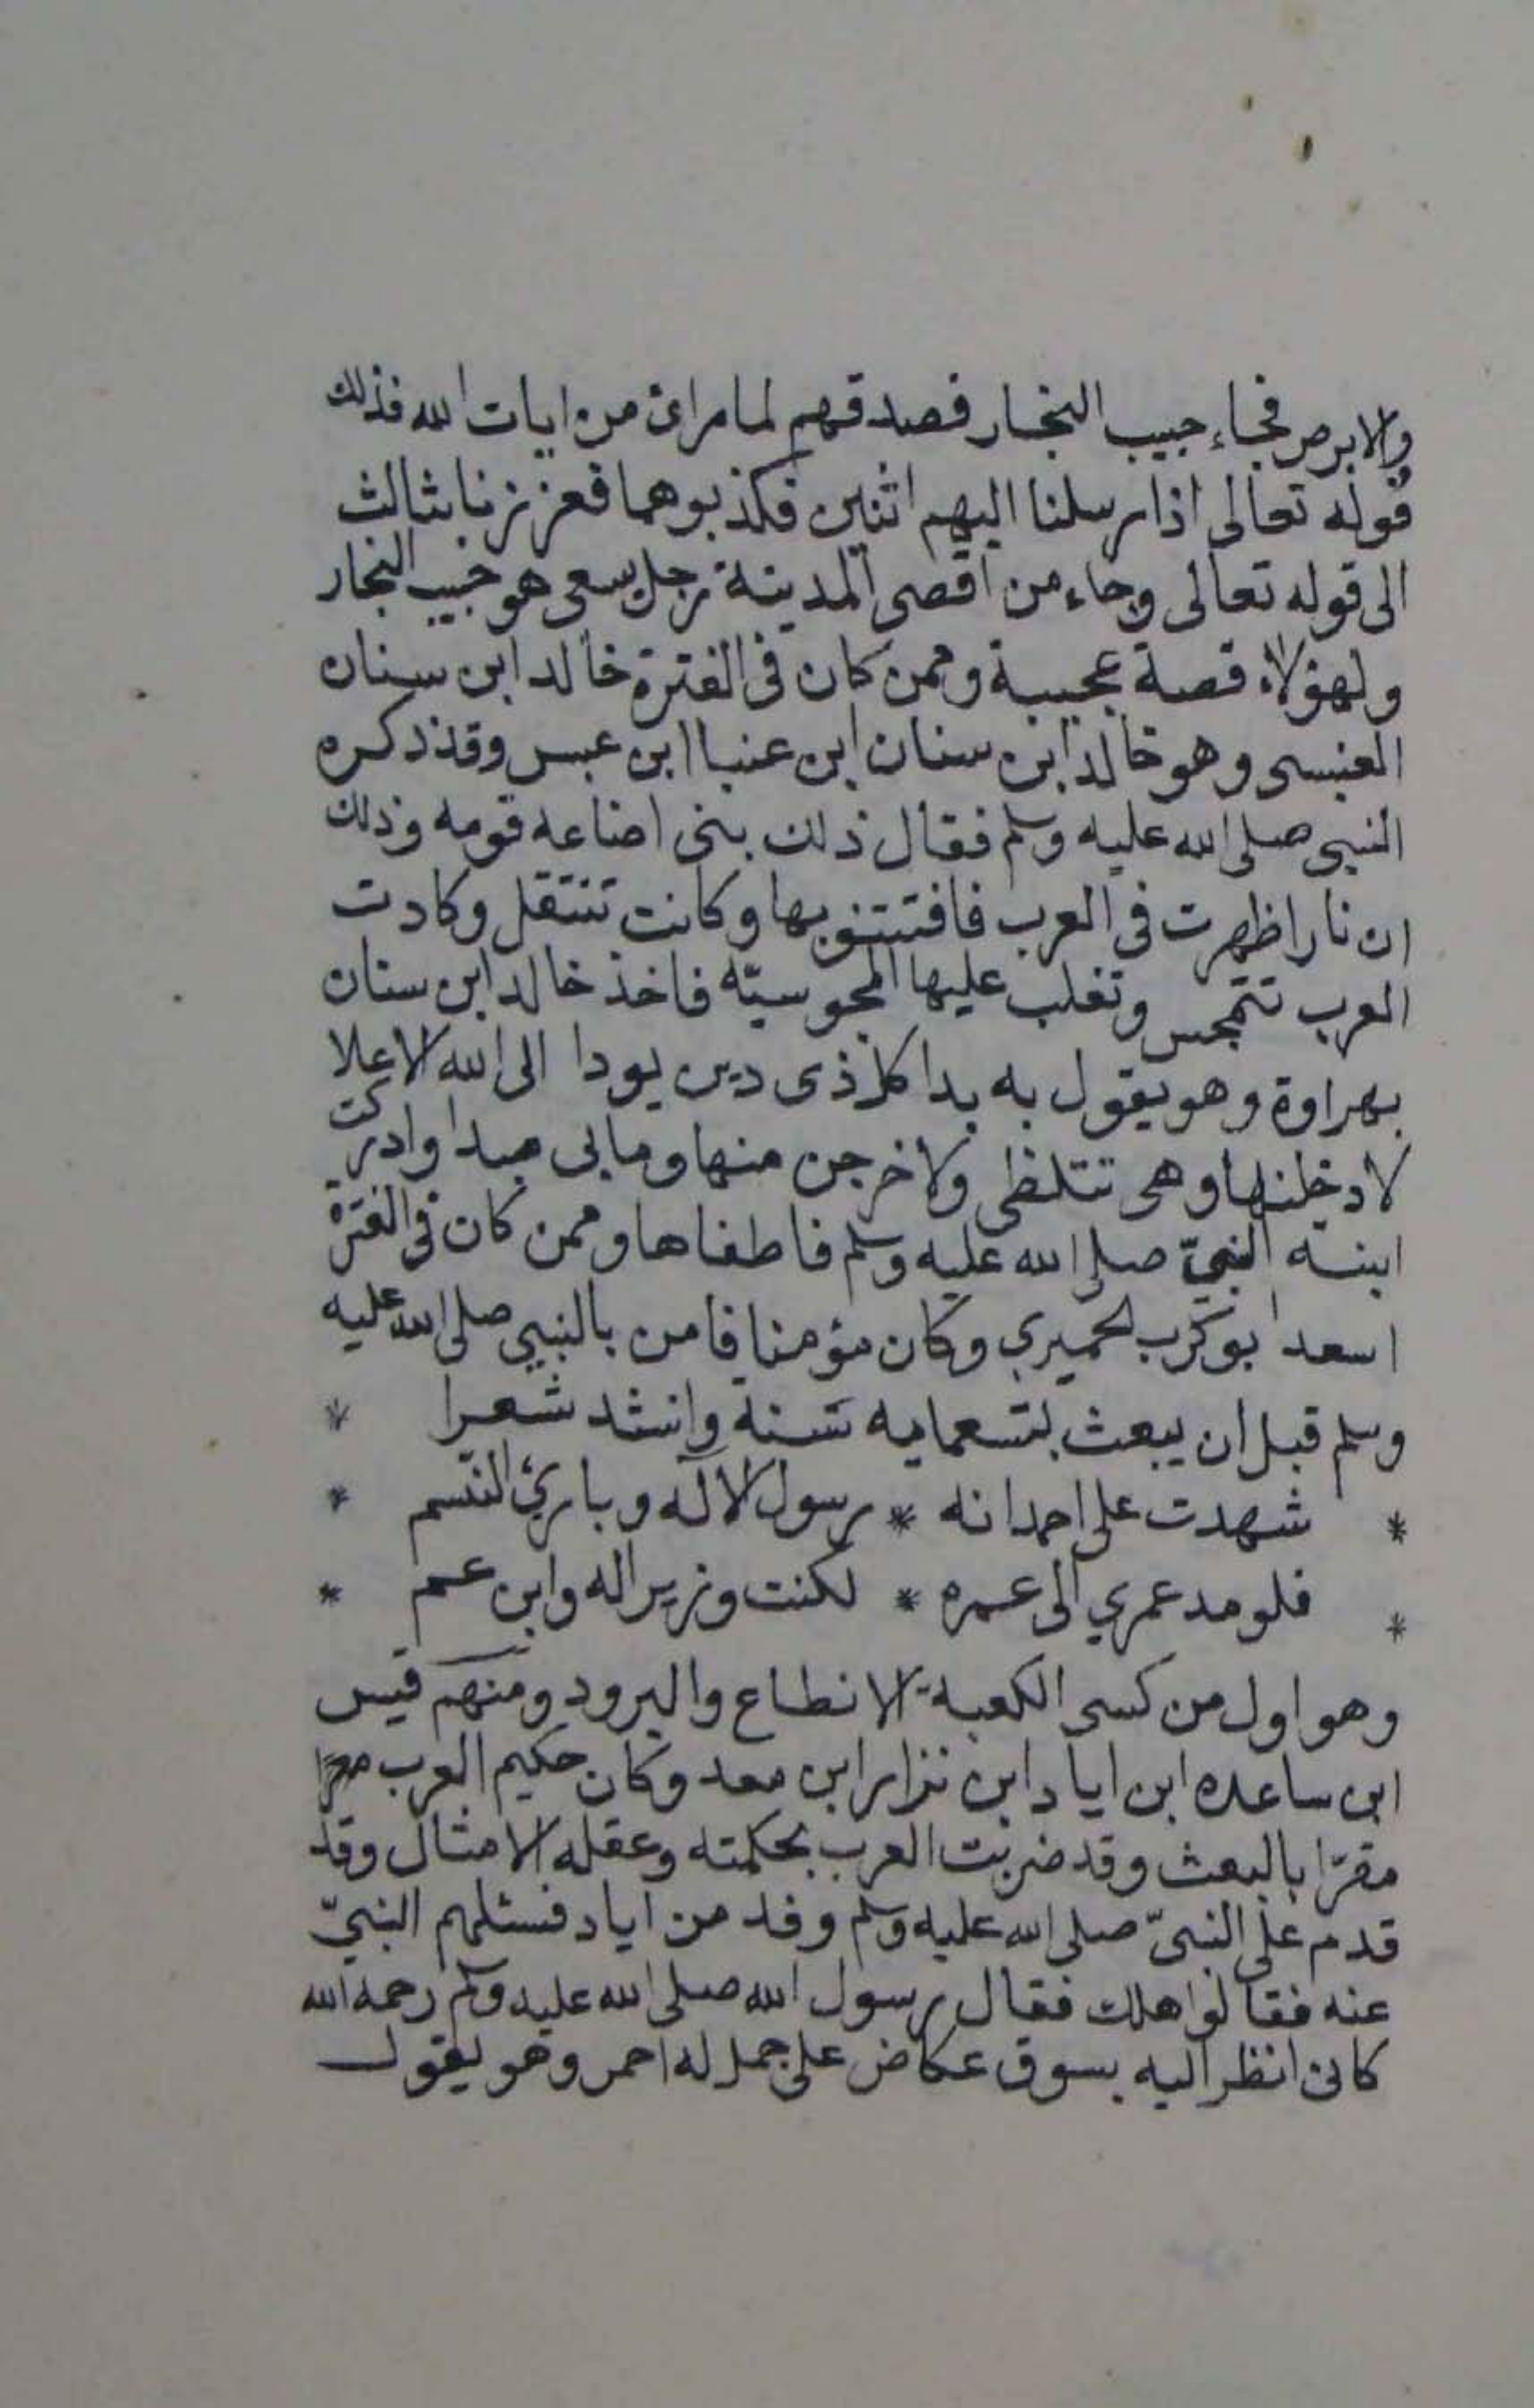 والابرص فجاء حبيب النجار فصدقهم لما راى من ايات الله فذلك
قوله تعالى اذا رسلنا اليهم اثنين فكذبوهما فعززنا بثالث
الى قوله تعالى وجاء من اقصى المدينة رجل يسعى هو حبيب النجار
ولهؤلاء قصة عجيبة وممن كان فى الفترة خالد ابن سنان
العنسى وهو خالد ابن سنان ابن عنبا ابن عبس وقد ذكره
النبيى صلى الله عليه وسلم فقال ذلك بنى اضاعه قومه وذلك
ان نارا ظهرت فى العرب فافتتنو بها وكانت تنتقل وكادت
العرب تتمجس وتغلب عليها المجوسيّه فاخذ خالد ابن سنان
بهراوة وهو يقول به بدا كل ذى دين يودا الى الله الاعلا
لادخلنها وهى تتلظى ولاخرجن منها وما بى مبدا وادركت
ابنته النبيّ صلى الله عليه وسلم فاطفاها وممن كان فى الفترة
اسعد ابو كرب لحميري وكان مؤمنا فامن بالنبيى صلى الله عليه
وسلم قبل ان يبعث بتسعمايه سنة وانشد شعرا *
* شهدت على احمد انه * رسول الاله وبارئ النسم *
* فلو مد عمري الى عمره * لكنت وزيرا له وابن عم *
وهو اول من كسى الكعبة الانطاع والبرود ومنهم قيس
ابن ساعده ابن اياد ابن نزار ابن معد وكان حكيم العرب
مقرّا بالبعث وقد ضربت العرب بحكمته وعقله الامثال وقد
قدم على النبىّ صلى الله عليه وسلم وفد من اياد فسئلهم النبيّ
عنه فقالوا هلك فقال رسول الله صلى الله عليه وسلم رحمه الله
كانى انظر اليه بسوق عكاض على جمل له احمر وهو يقول